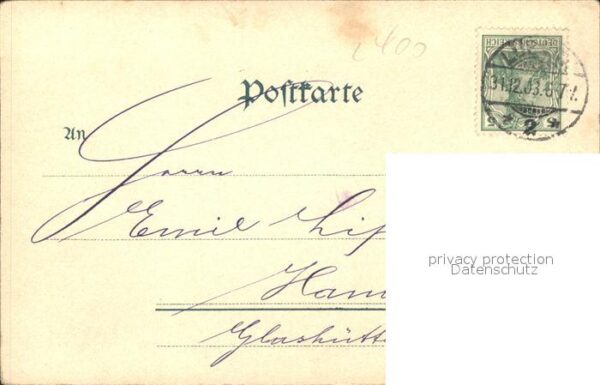 2400
Postkarte
DEUTSCHES REICH
31.12.03.6-7 N.
* 2 *
An
Herrn
Emil
Ham
Glashütt
privacy protection
Datenschutz